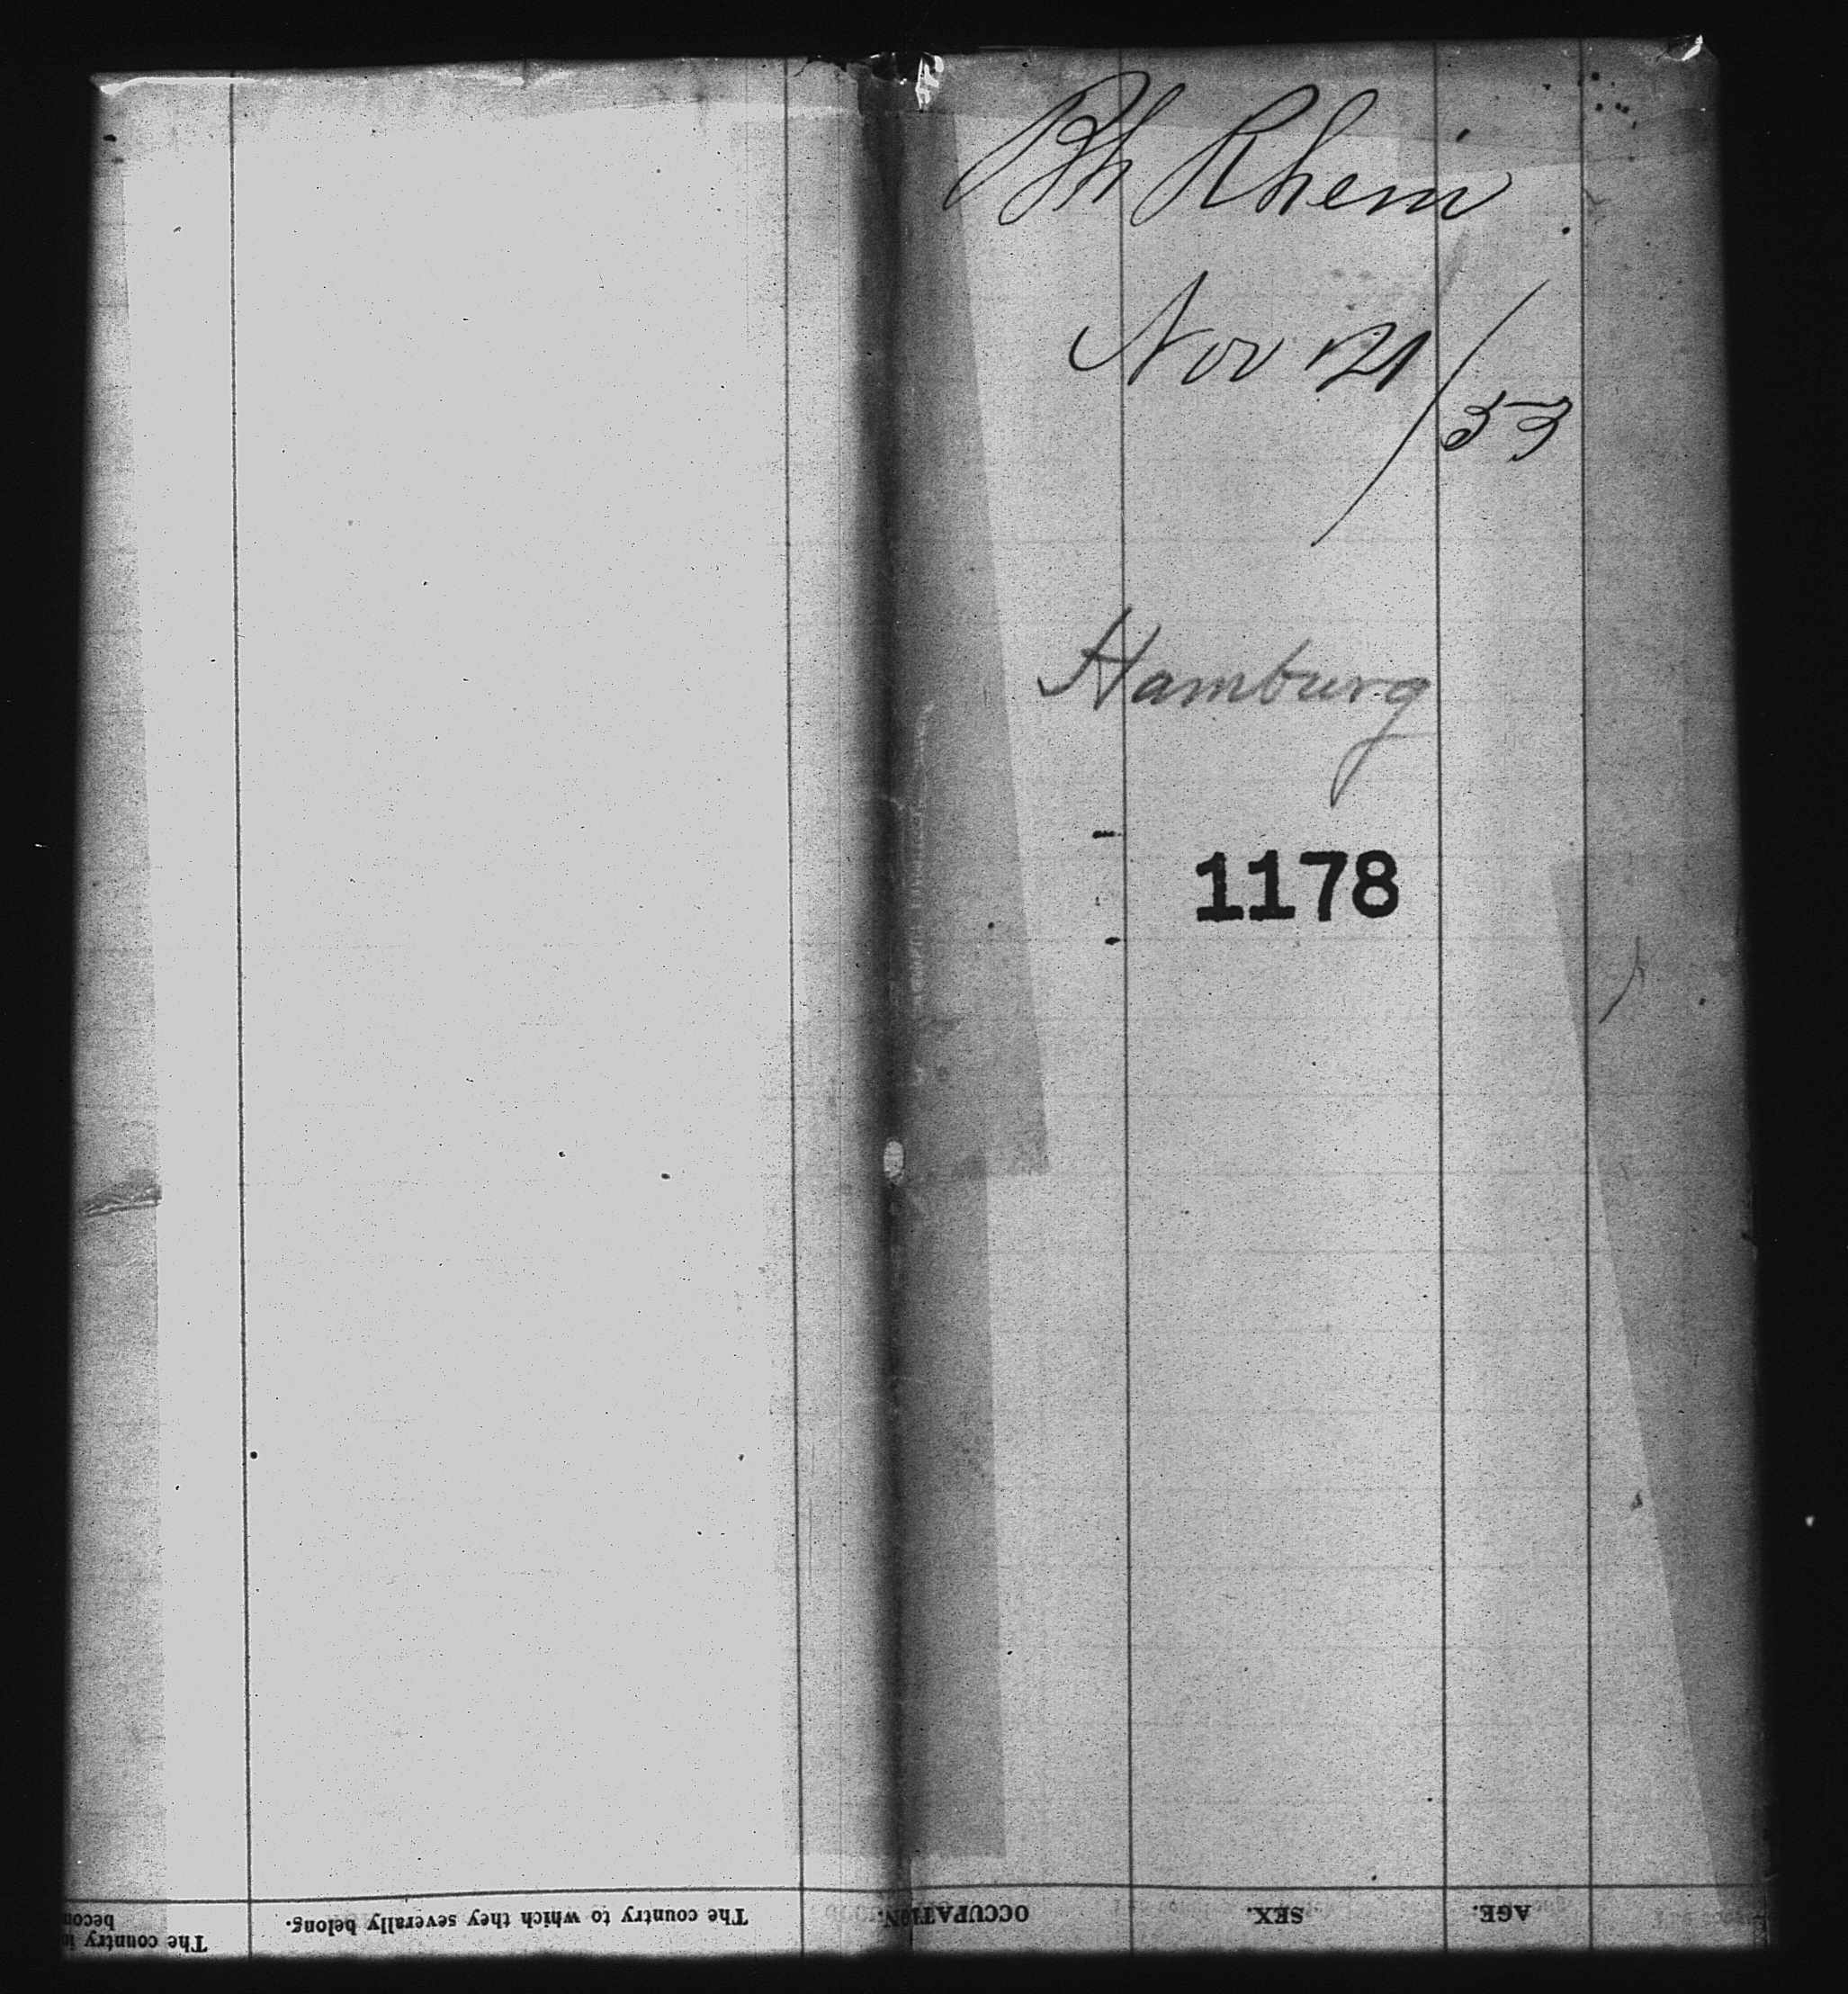 Bk Rhein
Nov 21/53
Hamburg
1178
AGE.
SEX.
OCCUPATION.
The country to which they severally belong.
The country in
becom